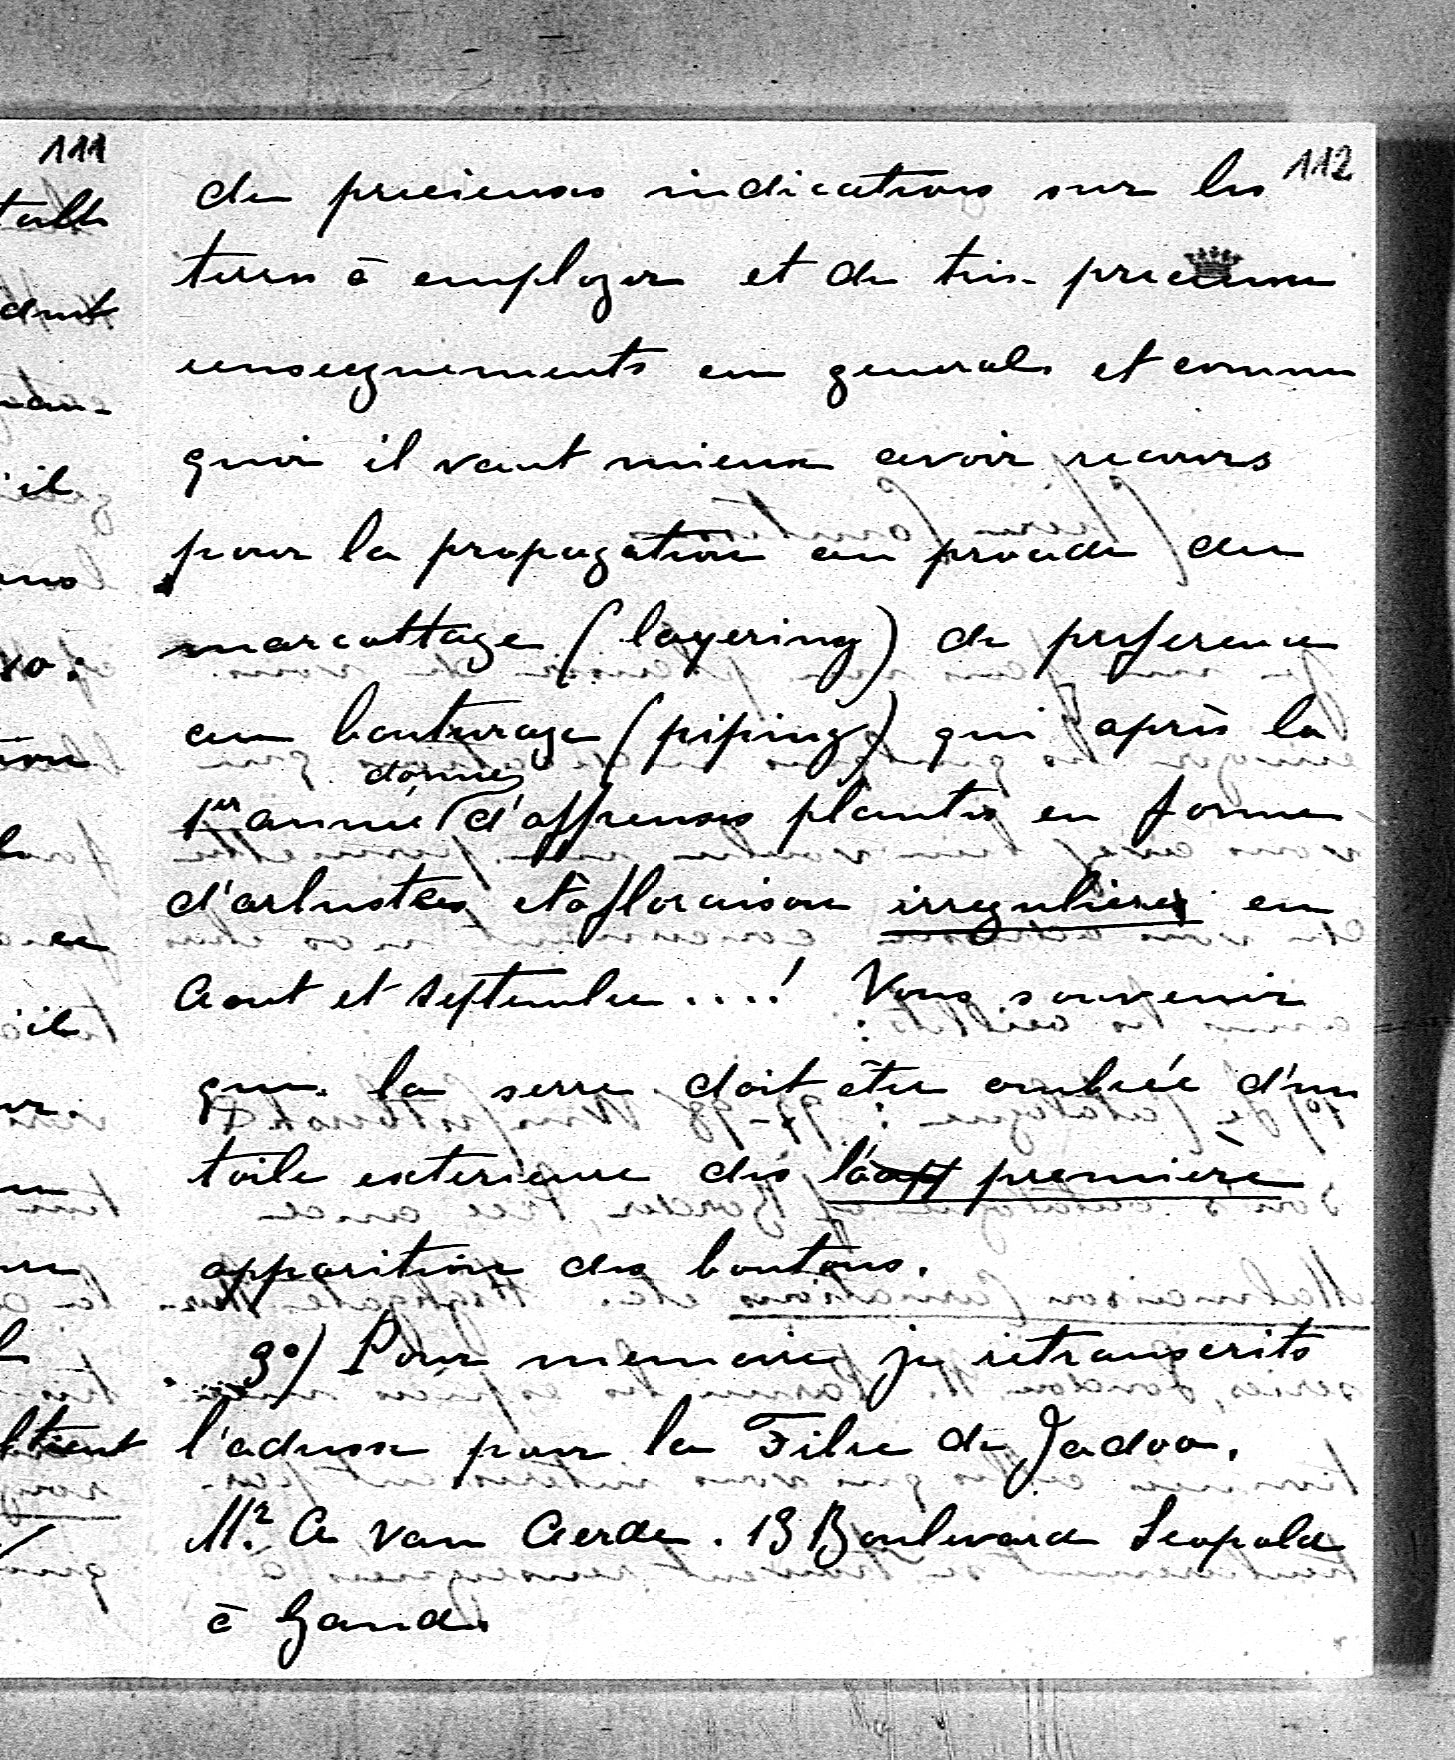 111
112
de precieuses indications sur les
terres à employer et de tres-precieux
renseignements en general et comme
quoi il vaut mieux avoir recours
pour la propagation au procede du
marcottage (layering) de preference
au bouturage (piping) qui après la
donne
1er année d'affreuses plantes en forme
d'arbustes et à floraison irregulière en
Aout et Septembre....! Vous souvenir
que la serre doit être ombrée d'un
toile exterieure dès la première
apparition des boutons.
3°) Pour memoire je retranscrits
l'adresse pour la Fibre de Jadoo.
Mr. A van Aerde. 13 Boulevard Leopold
à Gand.